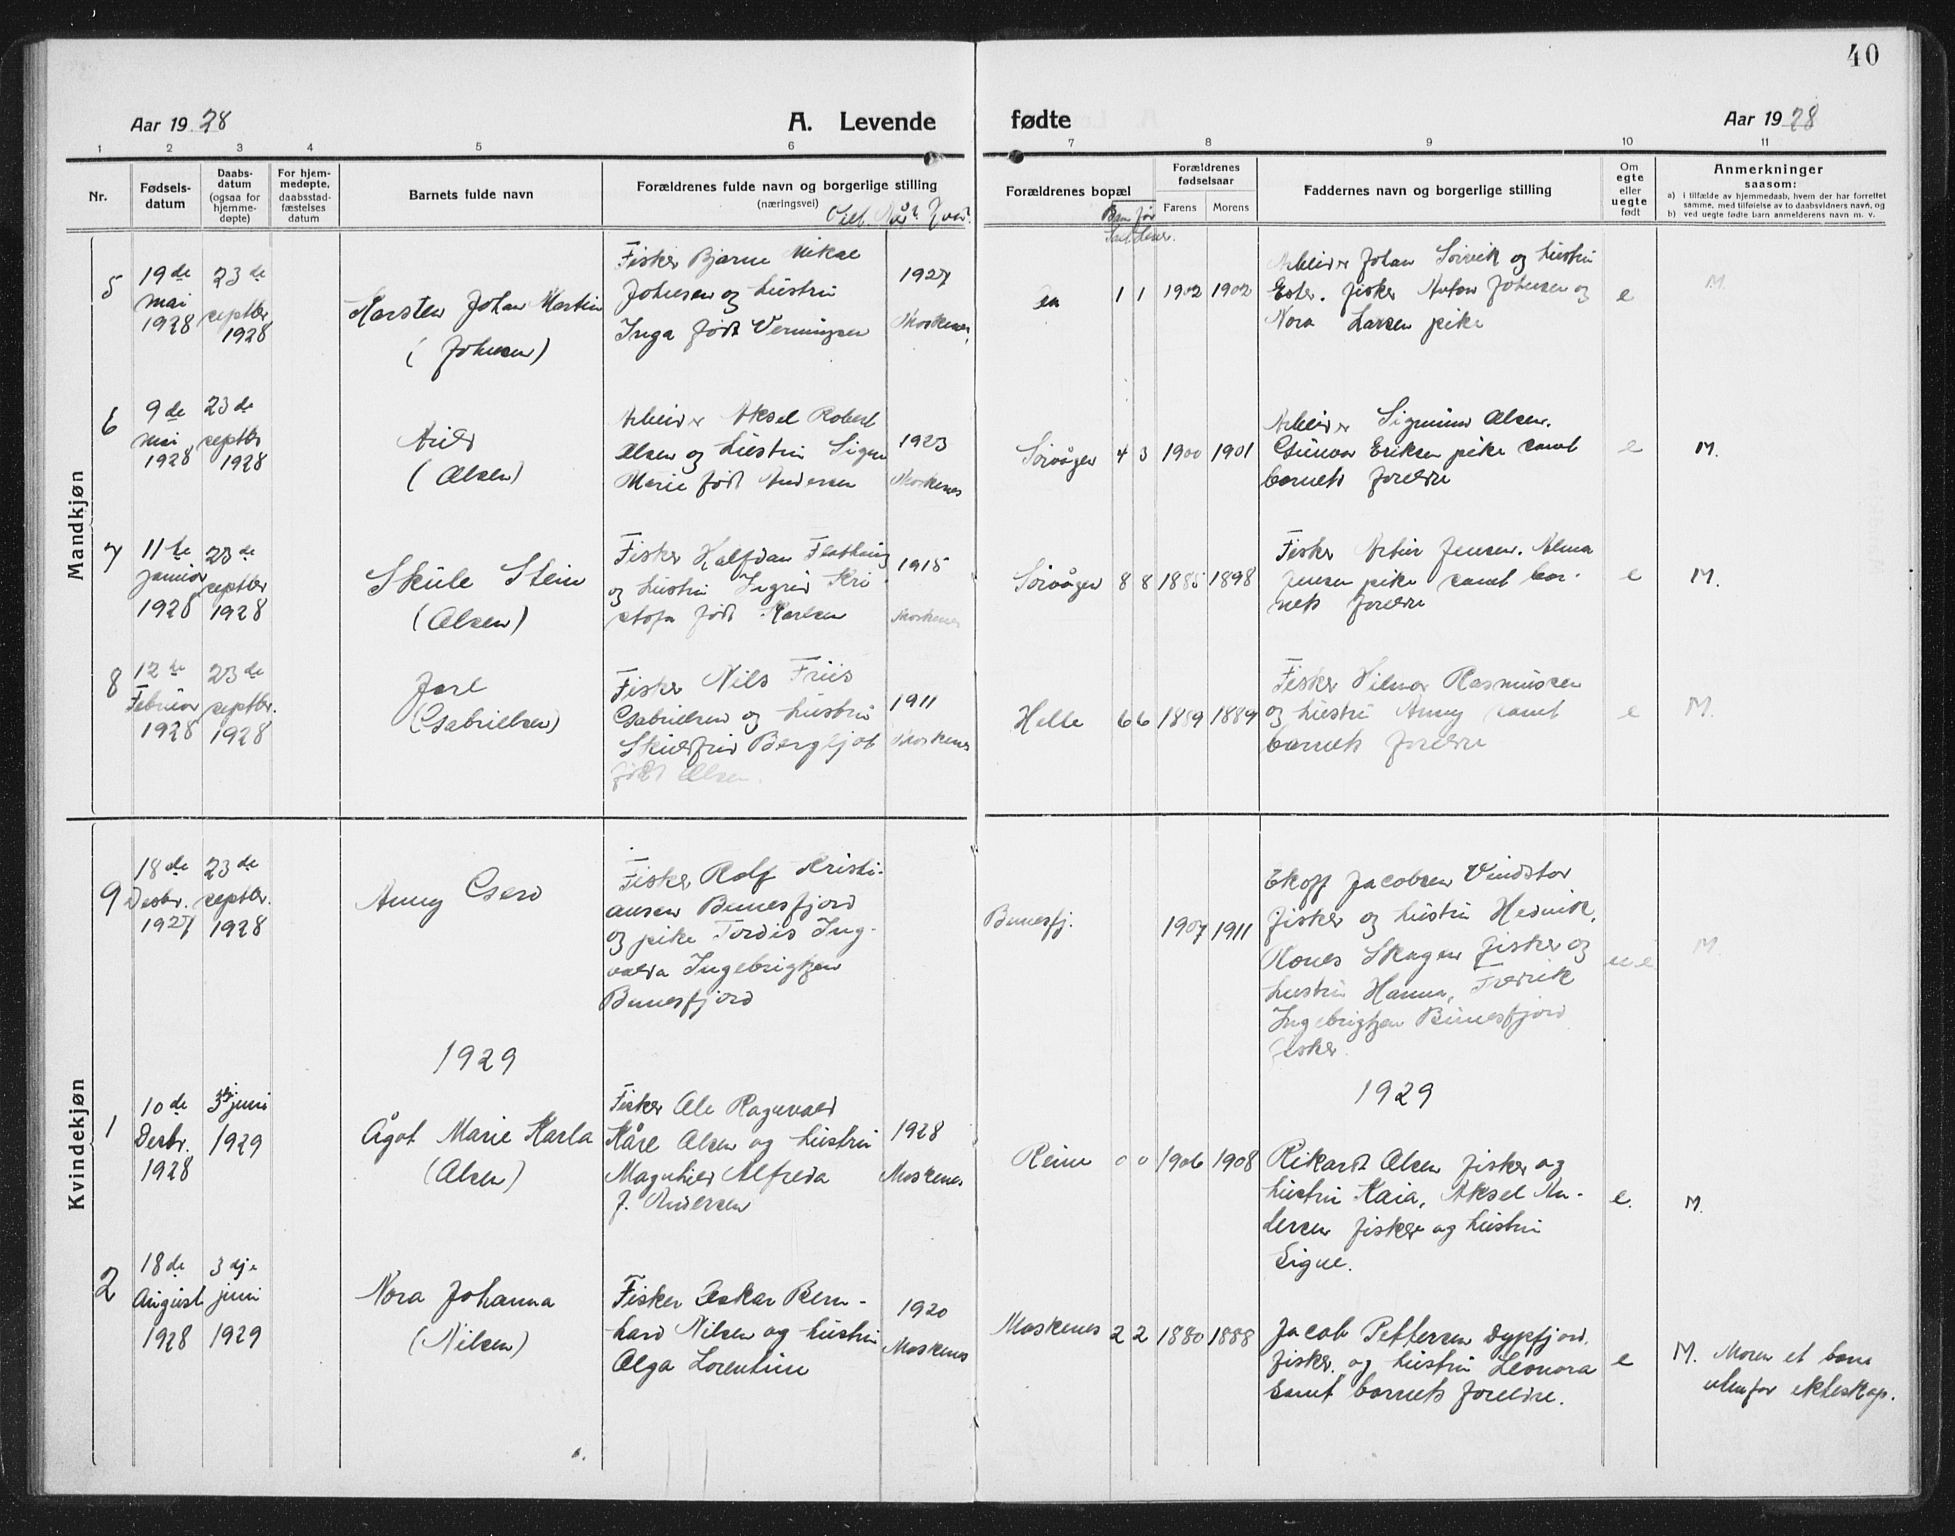 40
Aar 19 28
A. Levende
fødte
Aar 19 28
1 2 3 4 5 6 7 8 9 10 11
Nr.
Fødsels-
datum
Daabs-
datum
(ogsaa for
hjemme-
døpte)
For hjem-
medøpte,
daabsstad-
fæstelses
datum
Barnets fulde navn
Forældrenes fulde navn og borgerlige stilling
(næringsvei)
Forældrenes bopæl
Forældrenes
fødselsaar
Farens
Morens
Faddernes navn og borgerlige stilling
Om
egte
eller
uegte
født
Anmerkninger
saasom:
a) i tilfælde av hjemmedaab, hvem der har forrettet
samme, med tilføielse av to daabsvidners navn, og
b) ved uegte fødte barn anmelderens navn m. v.
Mandkjøn
5
19de
mai
1928
23de
septbr
1928
Karsten Johan Martin
(Johnsen)
Fisker Bjarne Mikal
Johnsen og hustru
Inga født Verningsen
1927
Moskenes
Aa
1 1 1902 1902
Arbeider Johan Sørvik og hustru
Ester. Fisker Anton Johnsen og
Nora Larsen pike
e
M.
6
9de
mai
1928
23de
septbr
1928
Arild
(Olsen)
Arbeider Aksel Robert
Olsen og hustru Signe
Marie født Andersen
1923
Moskenes
Sørvågen
4 3 1900 1901
Arbeider Sigmund Olsen.
Gunvor Eriksen pike samt
barnets foreldre
e
M.
7
11te
januar
1928
23de
septbr
1928
Skule Stein
(Olsen)
Fisker Halfdan
og hustru Ingrid Kri
stofa født Karlsen
1915
Moskenes
Sørvågen
8 8 1885 1898
Fisker Artur Jensen. Alma
Jensen pike samt bar-
nets foreldre
e
M.
8
12te
Februar
1928
23de
septbr.
1928
Jarl
(Gabrielsen)
Fisker Nils Friis
Gabrielsen og hustru
Skuldfrid Bergljot
født Olsen.
1911
Moskenes
Helle
6 6 1889 1889
Fisker Hilmar Rasmussen
og hustru Anny samt
barnets foreldre
e
M.
Kvindekjøn
9
18de
Desbr.
1927
23de
septbr.
1928
Anny Gerd
Fisker Rolf Kristi-
ansen Bunesfjord
og pike Tordis Ing-
valda Ingebrigtsen
Bunesfjord
Bunesfj.
1907 1911
Ekoff Jacobsen Vindstad
fisker og hustru Hedvik,
Kones Skagen fisker og
hustru Hanna, Fredrik
Ingebrigtsen Bunesfjord
fisker.
u.e.
M.
1929
1929
1
10de
Desbr.
1928
3dj juni
1929
Ågot Marie Karla
(Olsen)
Fisker Ole Ragnvald
Kåre Olsen og hustru
Magnhild Alfreda
f. Andersen
1928
Moskenes
Reine
0 0 1906 1908
Rikardt Olsen fisker og
hustru Kaia, Aksel An-
dersen fisker og hustru
Signe.
e.
M.
2
18de
August
1928
3dje
juni
1929
Nora Johanna
(Nilsen)
Fisker Oskar Bern-
hard Nilsen og hustru
Olga Lorentine
1920
Moskenes
Moskenes
2 2 1880 1888
Jacob Pettersen Dypfjord,
fisker, og hustru Leonora
samt barnets foreldre.
e
M. Moren et barn
utenfor ekteskap.